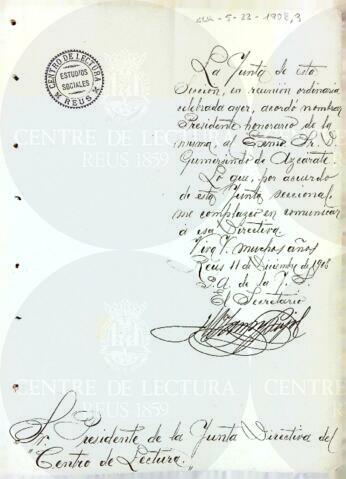 5-22-1908,3
CENTRO DE LECTURA
ESTUDIOS
SOCIALES
REUS
La Junta de esta
Sección, en reunión ordinaria
celebrada ayer, acordó nombrar
Presidente honorario de la
misma, al Exmo Sr. D.
Gumersindo de Azcárate.
Lo que, por acuerdo
de esta Junta seccional,
me complazco en comunicar
á esa Directiva.
Viva V. muchos años
Reus 11 de Diciembre de 1908
P. A. de la J. S.
El Secretario
Sr. Presidente de la Junta Directiva del
"Centro de Lectura."
CENTRE DE LECTURA
REUS 1859
CENTRE DE LECTURA
REUS 1859